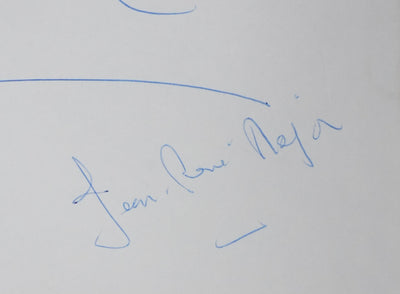 Jean-René Major